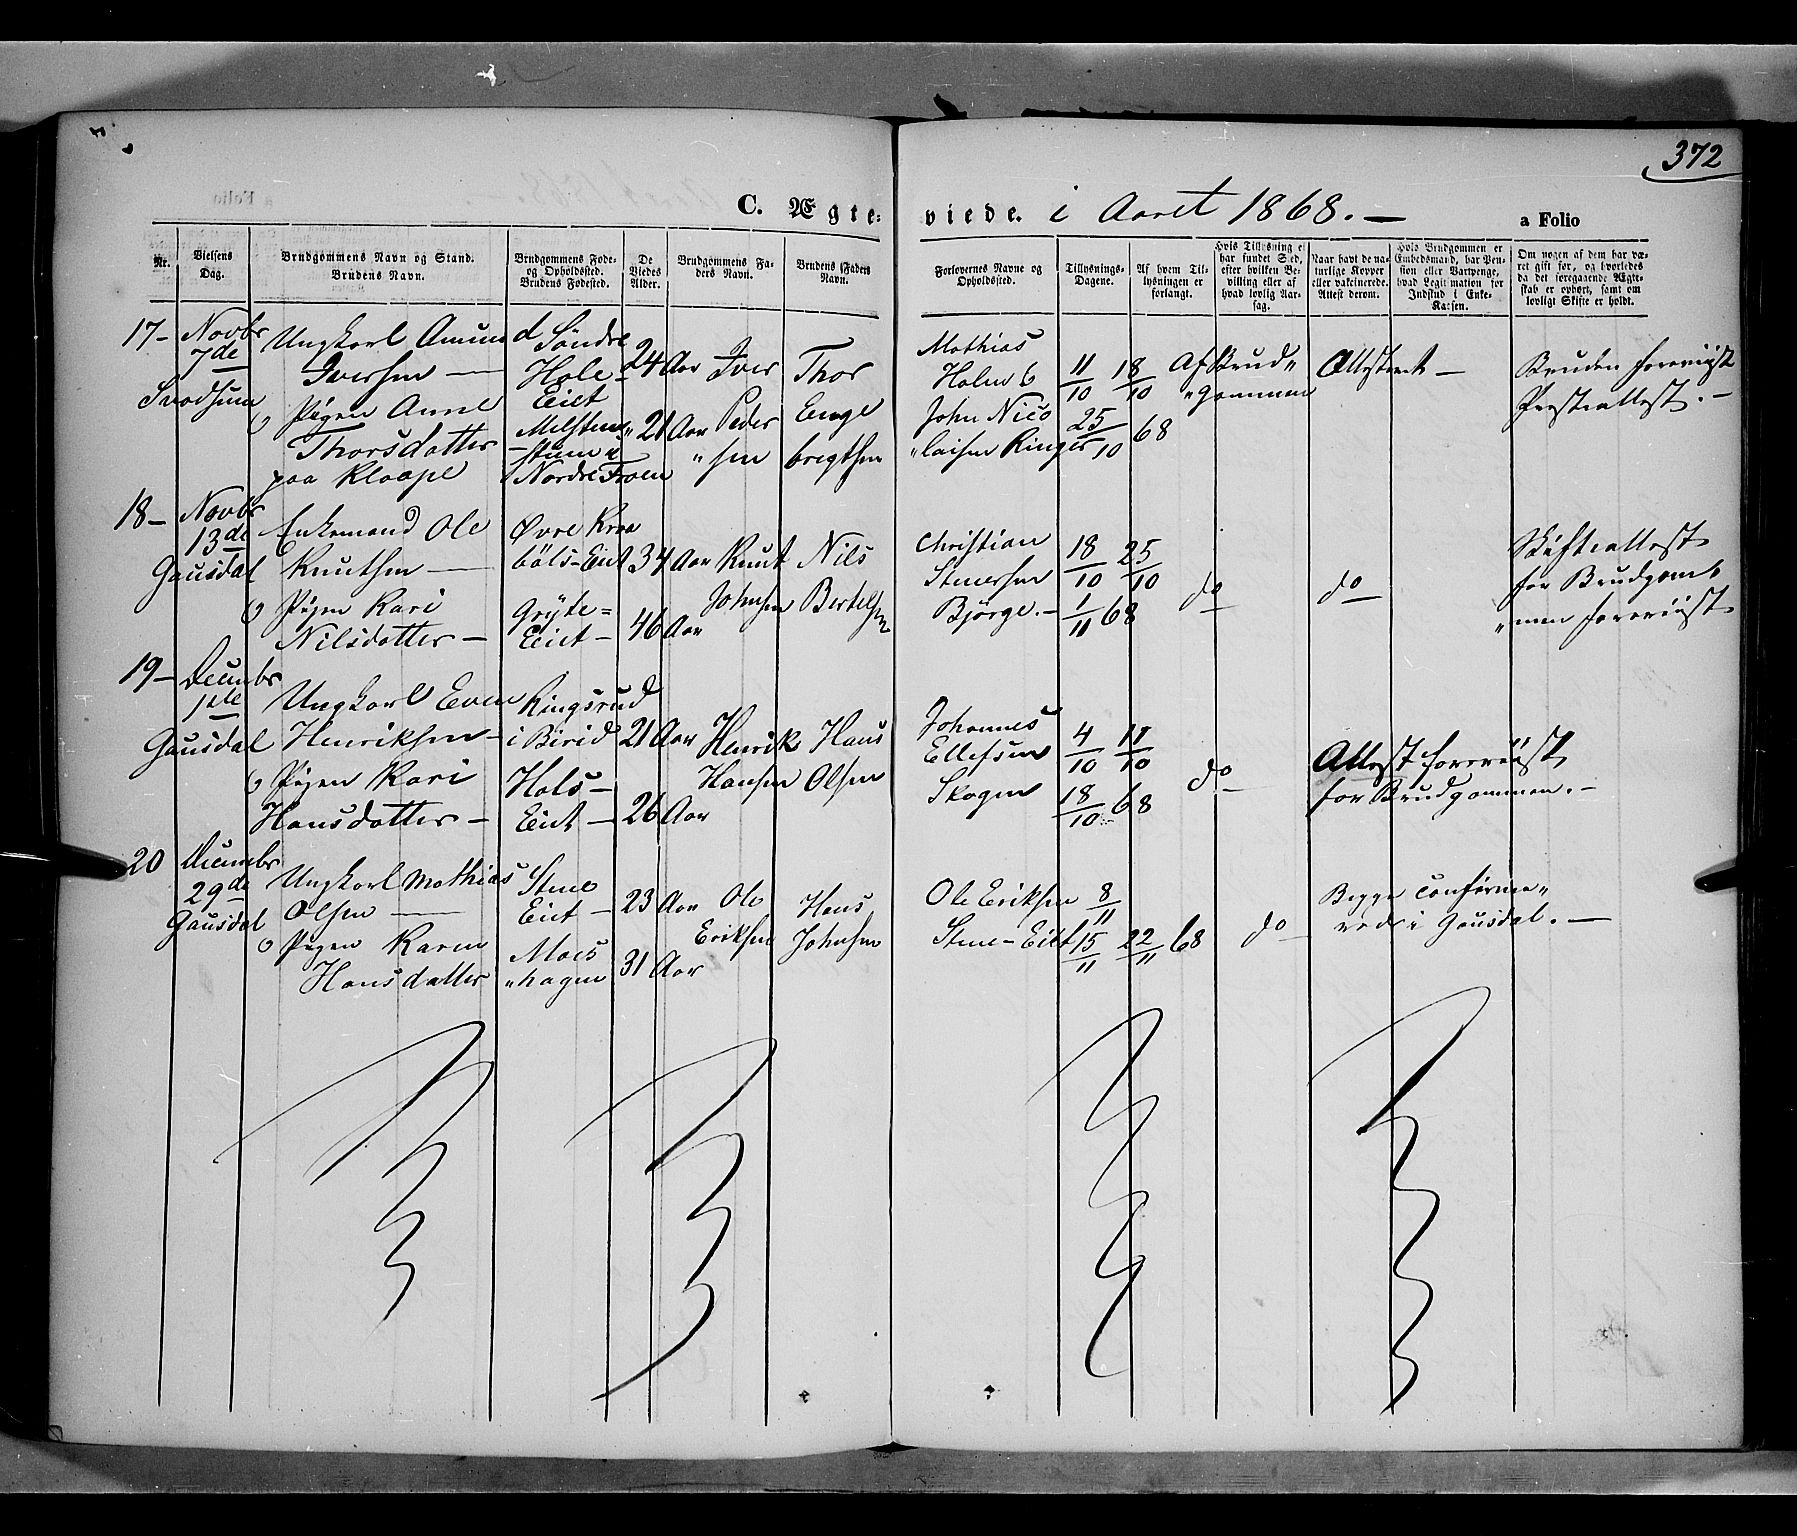 372
C. Ægteviede. i Aaret 1868. —
a Folio
Nr.
Vielsens Dag.
Brudgommens Navn og Stand. Brudens Navn.
Brudgommens Føde- og Opholdssted. Brudens Fødested.
De Viedes Alder.
Brudgommens Faders Navn.
Brudens Faders Navn.
Forlovernes Navne og Opholdssted.
Tillysnings-Dagene.
Af hvem Tillysningen er forlangt.
Hvis Tillysning ei har fundet Sted, efter hvilken Bevilling eller af hvad lovlig Aarsag.
Naar havt de naturlige Kopper eller vakcinerede. Attest derom.
Hvis Brudgommen er Embedsmand, har Pension eller Vartpenge, hvad Legitimation for Indskud i Enke-Kassen.
Om nogen af dem har været gift før, og hvorledes da det foregaaende Ægteskab er ophørt, samt om lovligt Skifte er holdt.
17 – Novbr 7de Svodsum
Ungkarl Amund Iversen —
Søndre Hole Eiet
24 Aar
Iver
Thor
Mathias Holm
11/10 18/10
Af Brud„
„gommen
Attesteret —
Bruden foreviist
Presteattest. –
& Pigen Anne
Thorsdatter
paa Klaape
Nordre Froen
21 Aar
Peder
„sen
Enge
bregtsen
John Nico
„laisen Ringer
25/10 68
18 – Novbr 13de Gausdal
Enkemand Ole
Knutsen —
Øvre Kraa
böls-Eiet
34 Aar
Knut
Johnsen
Nils
Bertelsen
Christian
Steuersen
Bjørge. –
18/10 25/10
1/11 68
do
do
Skifteattest
for Brudgom„
„men foreviist
& Pigen Kari
Nilsdatter –
Gryte=
Eiet –
46 Aar
19 – Decembr 1ste Gausdal
Ungkarl Even
Henriksen –
Ringsrud
i Birid
21 Aar
Henrik
Hansen
Hans
Olsen
Johannes
Ellefsen
Skogen
4/10 11/10
18/10 68
do
Attest foreviist
for Brudgommen. –
& Pigen Kari
Hansdatter –
Hols –
Eiet –
26 Aar
20 Decembr 29de Gausdal
Ungkarl Mathias
Olsen —
Stene
Eiet –
23 Aar
Ole
Eriksen
Hans
Johnsen
Ole Eriksen
Stene-Eiet
8/11
15/11 22/11 68
do
Begge confirme„
rede i Gausdal. —
& Pigen Karen
Hansdatter
Moes
„hagen
31 Aar